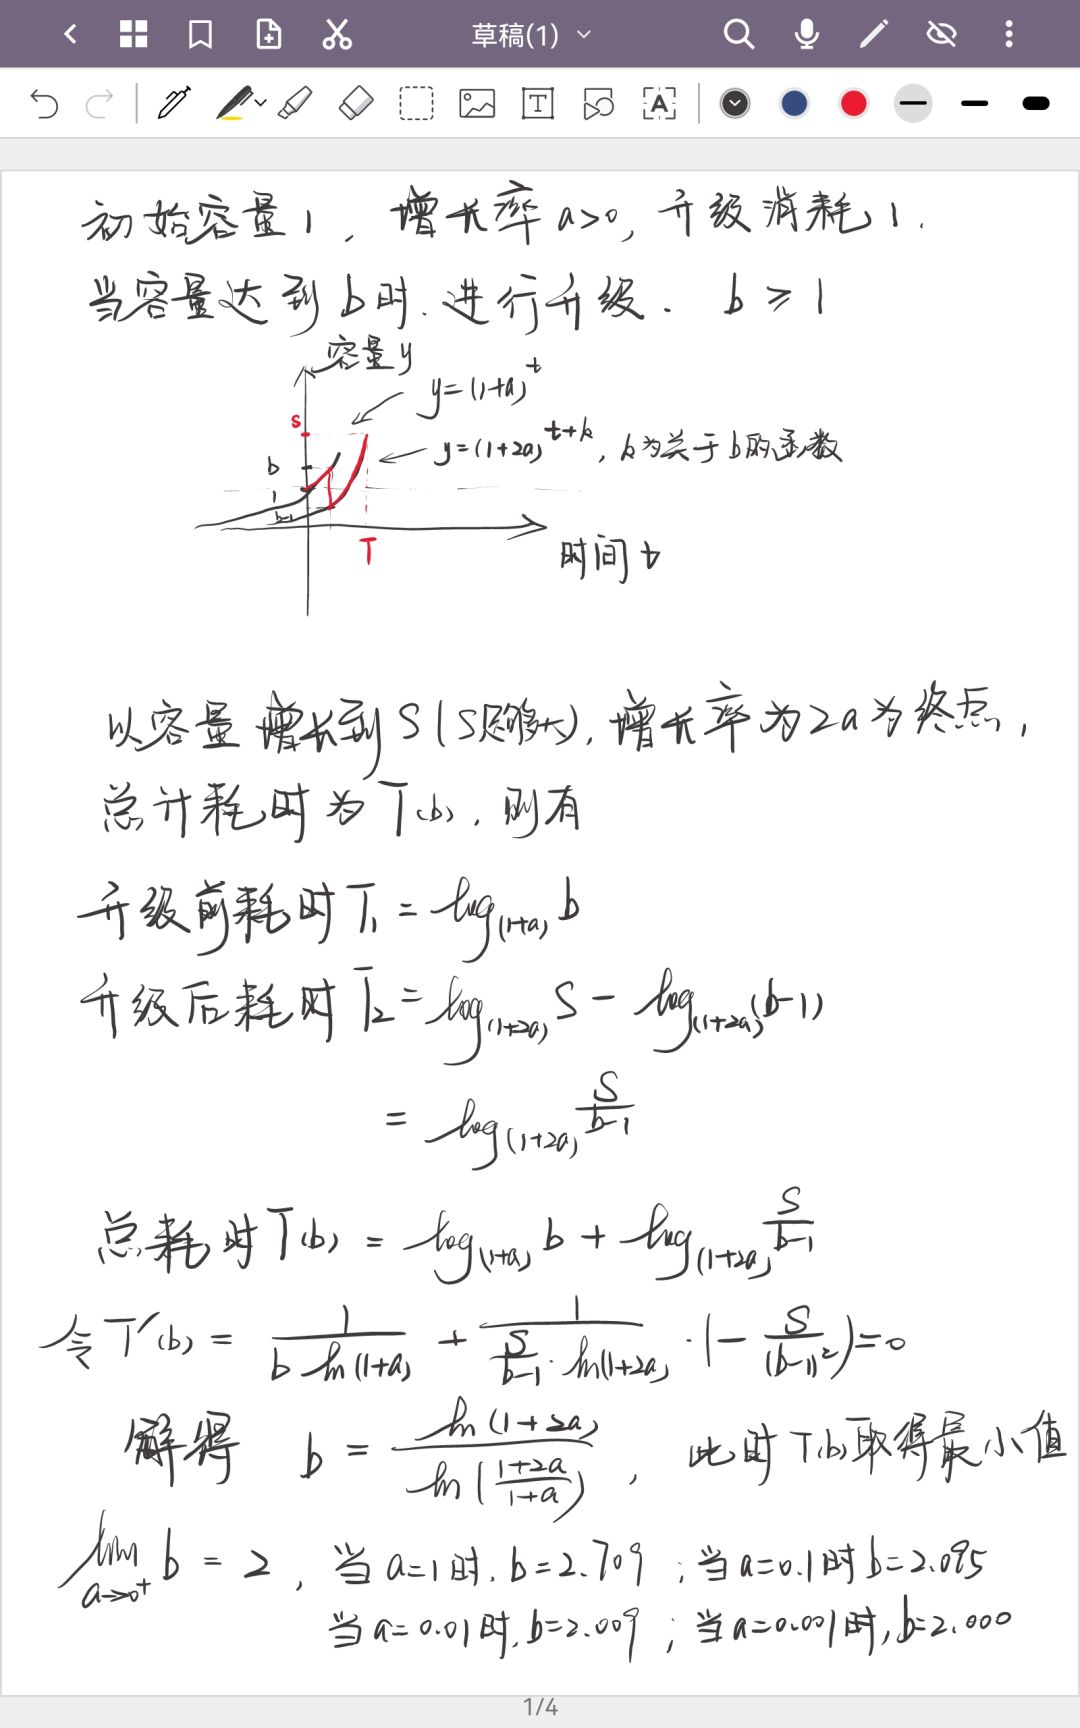 草稿(1)
初始容量1，增长率a>0，升级消耗1.
当容量达到b时，进行升级. b≥1
容量y
y=(1+a)^t
y=(1+2a)^{t+k}, k为关于b的函数
S
b
1
b-1
T
时间t
以容量增长到S(S足够大)，增长率为2a为终点，
总计耗时为T(b)，则有
升级前耗时T₁=log_(1+a) b
升级后耗时T₂=log_(1+2a) S - log_(1+2a) (b-1)
= log_(1+2a) S/(b-1)
总耗时T(b) = log_(1+a) b + log_(1+2a) S/(b-1)
令T'(b) = 1/(b ln(1+a)) + 1/(S/(b-1)·ln(1+2a)) ·(-S/(b-1)²)=0
解得 b = ln(1+2a)/ln((1+2a)/(1+a))，此时T(b)取得最小值
lim_{a→0⁺} b = 2，当a=1时，b=2.709；当a=0.1时b=2.095
当a=0.01时，b=2.009；当a=0.001时，b=2.000
1/4